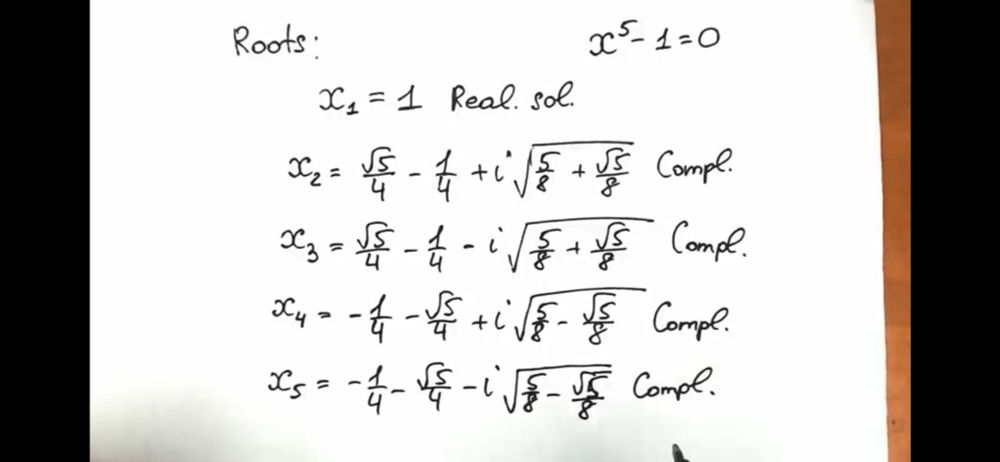 Roots: x⁵ - 1 = 0
x₁ = 1 Real. sol.
x₂ = √5/4 - 1/4 + i √(5/8 + √5/8) Compl.
x₃ = √5/4 - 1/4 - i √(5/8 + √5/8) Compl.
x₄ = - 1/4 - √5/4 + i √(5/8 - √5/8) Compl.
x₅ = - 1/4 - √5/4 - i √(5/8 - √5/8) Compl.